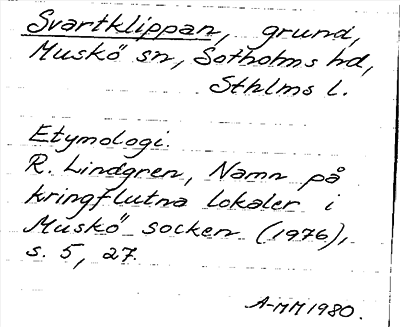 Svartklippan, grund,
Muskö sn, Sotholms hd,
Sthlms l.
Etymologi.
R. Lindgren, Namn på
kringflutna lokaler i
Muskö socken (1976),
s. 5, 27.
A-MM 1980.